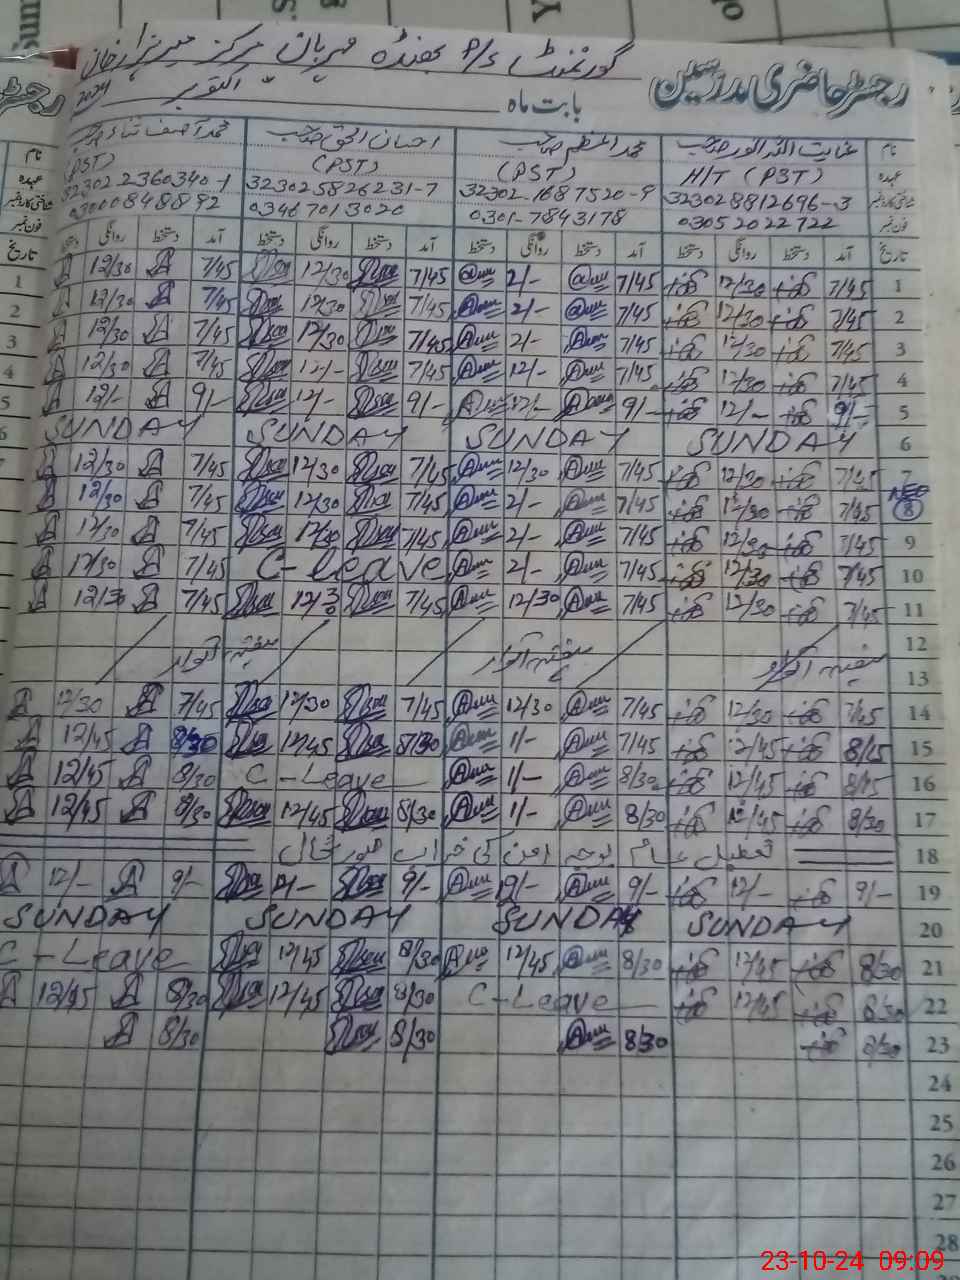 گورنمنٹ P/S جھنڈہ مہربان مرکز میر ہزار خان
رجسٹر حاضری مدرسین
بابت ماہ اکتوبر 2024
نام عنایت اللہ انور صاحب محمد اعظم صاحب احسان الحق صاحب محمد آصف
عہدہ H/T (PST) (PST) (PST) (PST)
شناختی کارڈ نمبر 323028812696-3 32302-1687520-9 323025826231-7 323022360340-1
فون نمبر 03052022722 0301-7843178 03467013020 03000848892
تاریخ آمد دستخط روانگی دستخط آمد دستخط روانگی دستخط آمد دستخط روانگی دستخط آمد دستخط روانگی دستخط تاریخ
1 12/30 7/45 12/30 7/45 2/- 7/45 12/30 7/45 1
2 12/30 7/45 12/30 7/45 2/- 7/45 12/30 7/45 2
3 12/30 7/45 12/30 7/45 2/- 7/45 12/30 7/45 3
4 12/30 7/45 12/- 7/45 12/- 7/45 12/30 7/45 4
5 12/- 9/- 12/- 9/- 12/- 9/- 12/- 9/- 5
6 SUNDAY SUNDAY SUNDAY SUNDAY 6
12/30 7/45 12/30 7/45 12/30 7/45 12/30 7/45 7
12/30 7/45 12/30 7/45 2/- 7/45 12/30 7/45 8
12/30 7/45 12/30 7/45 2/- 7/45 12/30 7/45 9
12/30 7/45 C-leave 2/- 7/45 12/30 7/45 10
12/30 7/45 12/30 7/45 12/30 7/45 12/30 7/45 11
12
13
12/30 7/45 12/30 7/45 12/30 7/45 12/30 7/45 14
12/45 8/30 12/45 8/30 1/- 7/45 12/45 8/15 15
12/45 8/30 C-Leave 1/- 8/30 12/45 8/15 16
12/45 8/30 12/45 8/30 1/- 8/30 12/45 8/30 17
تعطیل عام بوجہ امن کی خراب صورتحال 18
12/- 9/- 12/- 9/- 9/- 9/- 12/- 9/- 19
SUNDAY SUNDAY SUNDAY SUNDAY 20
C-Leave 12/45 8/30 12/45 8/30 12/45 8/30 21
12/45 8/30 12/45 8/30 C-Leave 12/45 8/30 22
8/30 8/30 8/30 8/30 23
24
25
26
27
28
23-10-24 09:09